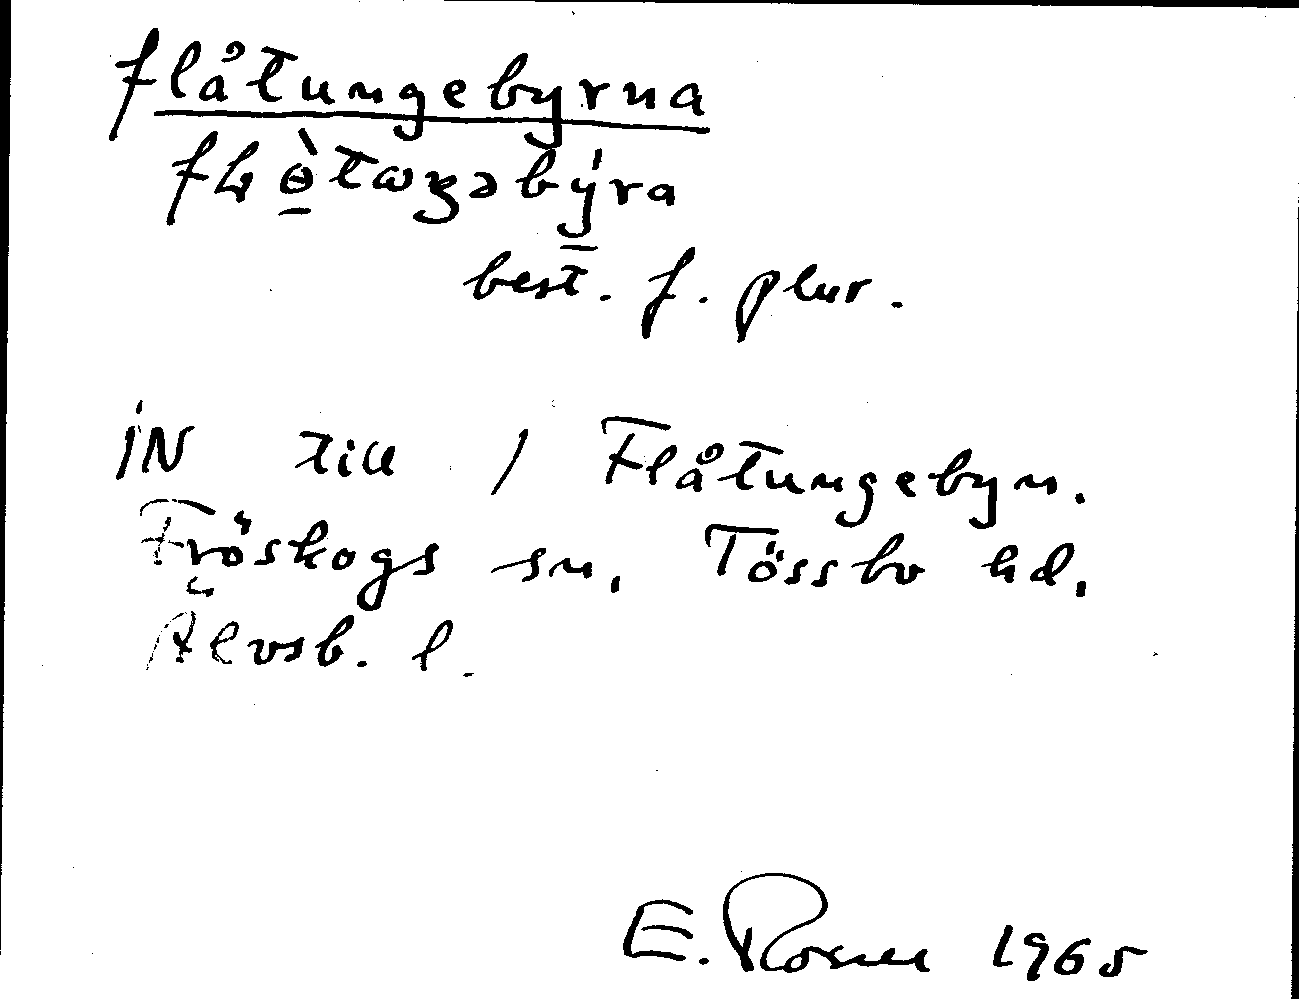 flåtungebyrna
fɽɵ̀tωŋəbýra
best. f. plur.
IN till / Flåtungebyn.
Fröskogs sn, Tössbo hd,
Älvsb. l.
E. Rosen 1965